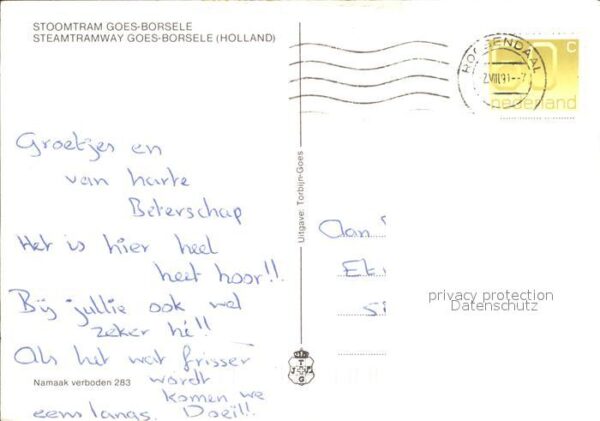 STOOMTRAM GOES-BORSELE
STEAMTRAMWAY GOES-BORSELE (HOLLAND)
Groetjes en
van harte
Beterschap
Het is hier heel
heet hoor!!
Bij jullie ook wel
zeker hè!!
Als het wat frisser
wordt
komen we
eens langs. Doeii!!
Namaak verboden 283
Uitgave: Torbijn-Goes
T
G
ROOSENDAAL
2.VIII.91--7
C
nederland
Aan
privacy protection
Datenschutz